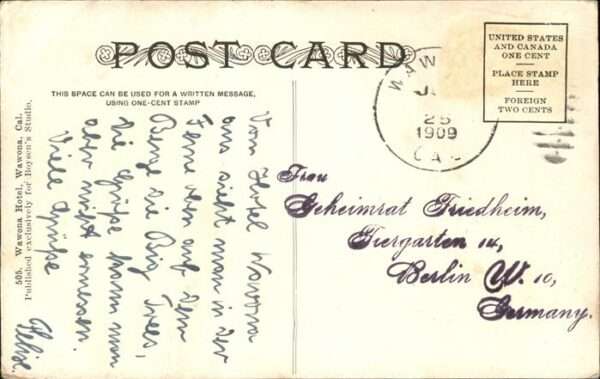 POST CARD
THIS SPACE CAN BE USED FOR A WRITTEN MESSAGE,
USING ONE-CENT STAMP
UNITED STATES
AND CANADA
ONE CENT
PLACE STAMP
HERE
FOREIGN
TWO CENTS
25
1909
CAL
505. Wawona Hotel, Wawona, Cal.
Published exclusively for Boysen's Studio.
Vom Hotel Wawona
aus sieht man in der
Ferne oben auf dem
Berge die Big Trees,
die Größe kann man
aber nicht ermessen.
Viele Grüße
Felix
Frau
Geheimrat Friedheim,
Tiergarten 14,
Berlin W. 10,
Germany.